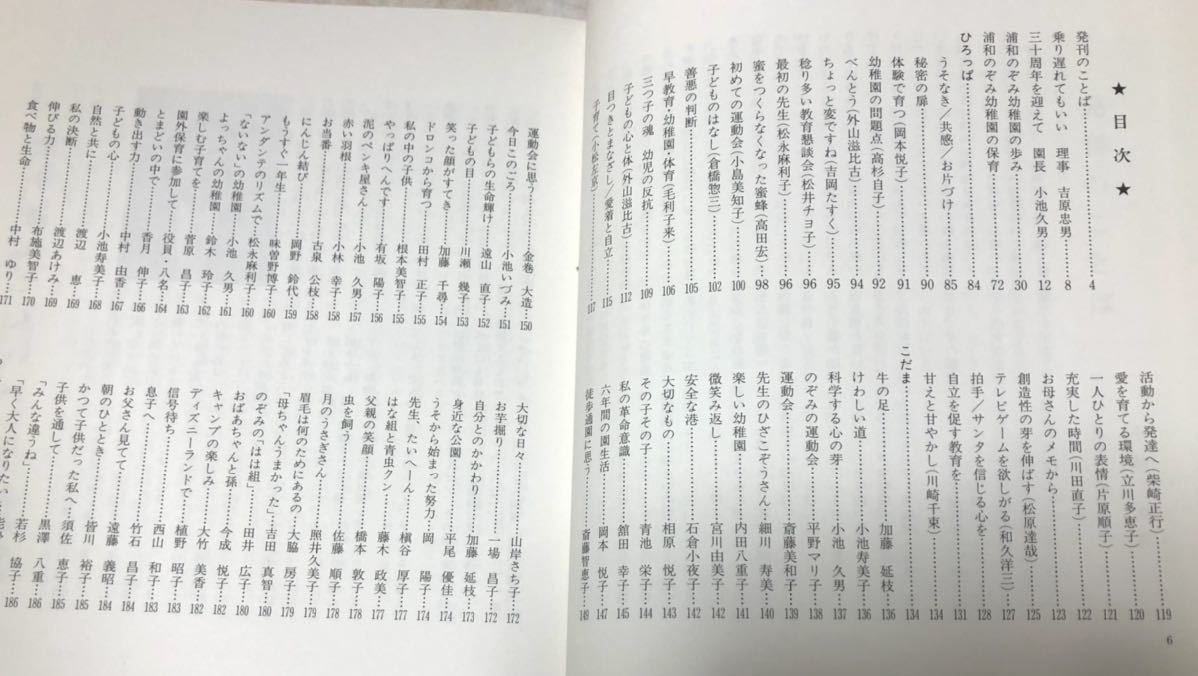 ★ 目 次 ★
発刊のことば……4
乗り遅れてもいい 理事 吉原忠男……8
三十周年を迎えて 園長 小池久男……12
浦和のぞみ幼稚園の歩み……30
浦和のぞみ幼稚園の保育……72
ひろっぱ……84
うそなき／共感／お片づけ……85
秘密の扉……90
体験で育つ(岡本悦子)……91
幼稚園の問題点(高杉自子)……92
べんとう(外山滋比古)……94
ちょっと変ですね(吉岡たすく)……95
稔り多い教育懇談会(松井チヨ子)……96
最初の先生(松永麻利子)……96
蜜をつくらなくなった蜜蜂(高田宏)……98
初めての運動会(小島美知子)……100
子どものはなし(倉橋惣三)……102
善悪の判断……105
早教育・幼稚園・体育(毛利子来)……106
三つ子の魂 幼児の反抗……109
子どもの心と体(外山滋比古)……112
目つきとまなざし／愛着と自立……115
子育て(小松左京)……117
活動から発達へ(柴崎正行)……119
愛を育てる環境(立川多恵子)……120
一人ひとりの表情(片原順子)……121
充実した時間(川田直子)……122
お母さんのメモから……123
創造性の芽を伸ばす(松原達哉)……125
テレビゲームを欲しがる(和久洋三)……127
拍手／サンタを信じる心を……128
自立を促す教育を……131
甘えと甘やかし(川崎千束)……134
こだま……134
牛の足……加藤 延枝……136
けわしい道……小池寿美子……136
科学する心の芽……小池 久男……137
のぞみの運動会……平野マリ子……138
運動会……斎藤美和子……139
先生のひざこぞうさん……細川 寿美……140
楽しい幼稚園……内田八重子……141
微笑み返し……宮川由美子……142
安全な港……石倉小夜子……142
大切なもの……相原 悦子……143
その子その子……青池 栄子……144
私の革命意識……舘田 幸子……145
六年間の園生活……岡本 悦子……147
徒歩通園に思う……斎藤智恵子……149
6
運動会に思う……金巻 大造……150
今日このごろ……小池いづみ……151
子どもらの生命輝け……遠山 直子……152
子どもの目……川瀬 幾子……153
笑った顔がすてき……加藤 千尋……154
ドロンコから育つ……田村 正子……155
私の中の子供……根本美智子……155
やっぱりへんです……有坂 陽子……156
泥のペンキ屋さん……小池 久男……157
赤い羽根……小林 幸子……158
お当番……古泉 公枝……158
にんじん結び……岡野 鈴代……159
もうすぐ一年生……味曽野博子……160
アンダンテのリズムで……松永麻利子……160
「ないない」の幼稚園……小池 久男……161
よっちゃんの幼稚園……鈴木 玲子……162
楽しむ子育てを……菅原 昌子……163
園外保育に参加して……役員・八名……164
とまどいの中で……香月 伸子……166
動き出す力……中村 由香……167
子どもの心……小池寿美子……168
自然と共に……渡辺 恵……169
私の決断……渡辺あけみ……169
伸びる力……布施美智子……170
食べ物と生命……中村 ゆり……171
大切な日々……山岸さち子……172
お芋掘り……一場 昌子……172
自分とのかかわり……加藤 延枝……173
身近な公園……平尾 優佳……174
うそから始まった努力……岡 陽子……174
先生、たいへーん……槇谷 厚子……177
はな組と青虫クン……藤木 政美……177
父親の笑顔……橋本 敦子……178
虫を飼う……佐藤 順子……178
月のうさぎさん……照井久美子……179
眉毛は何のためにあるの……大脇 房子……179
「母ちゃんうまかった」……吉田 真智……180
のぞみの〝はは組〟……田井 広子……180
おばあちゃんと孫……今成 悦子……182
キャンプの楽しみ……大竹 美香……182
ディズニーランドで……植野 昭子……183
信号待ち……西山 和子……183
息子へ……竹石 昌子……184
お父さん見てて……遠藤 義昭……184
朝のひととき……皆川 裕子……185
かつて子供だった私へ……須佐 恵子……185
子供を通して……黒澤 八重……186
「みんな違うね」……若杉 協子……186
「早く大人になりたい」